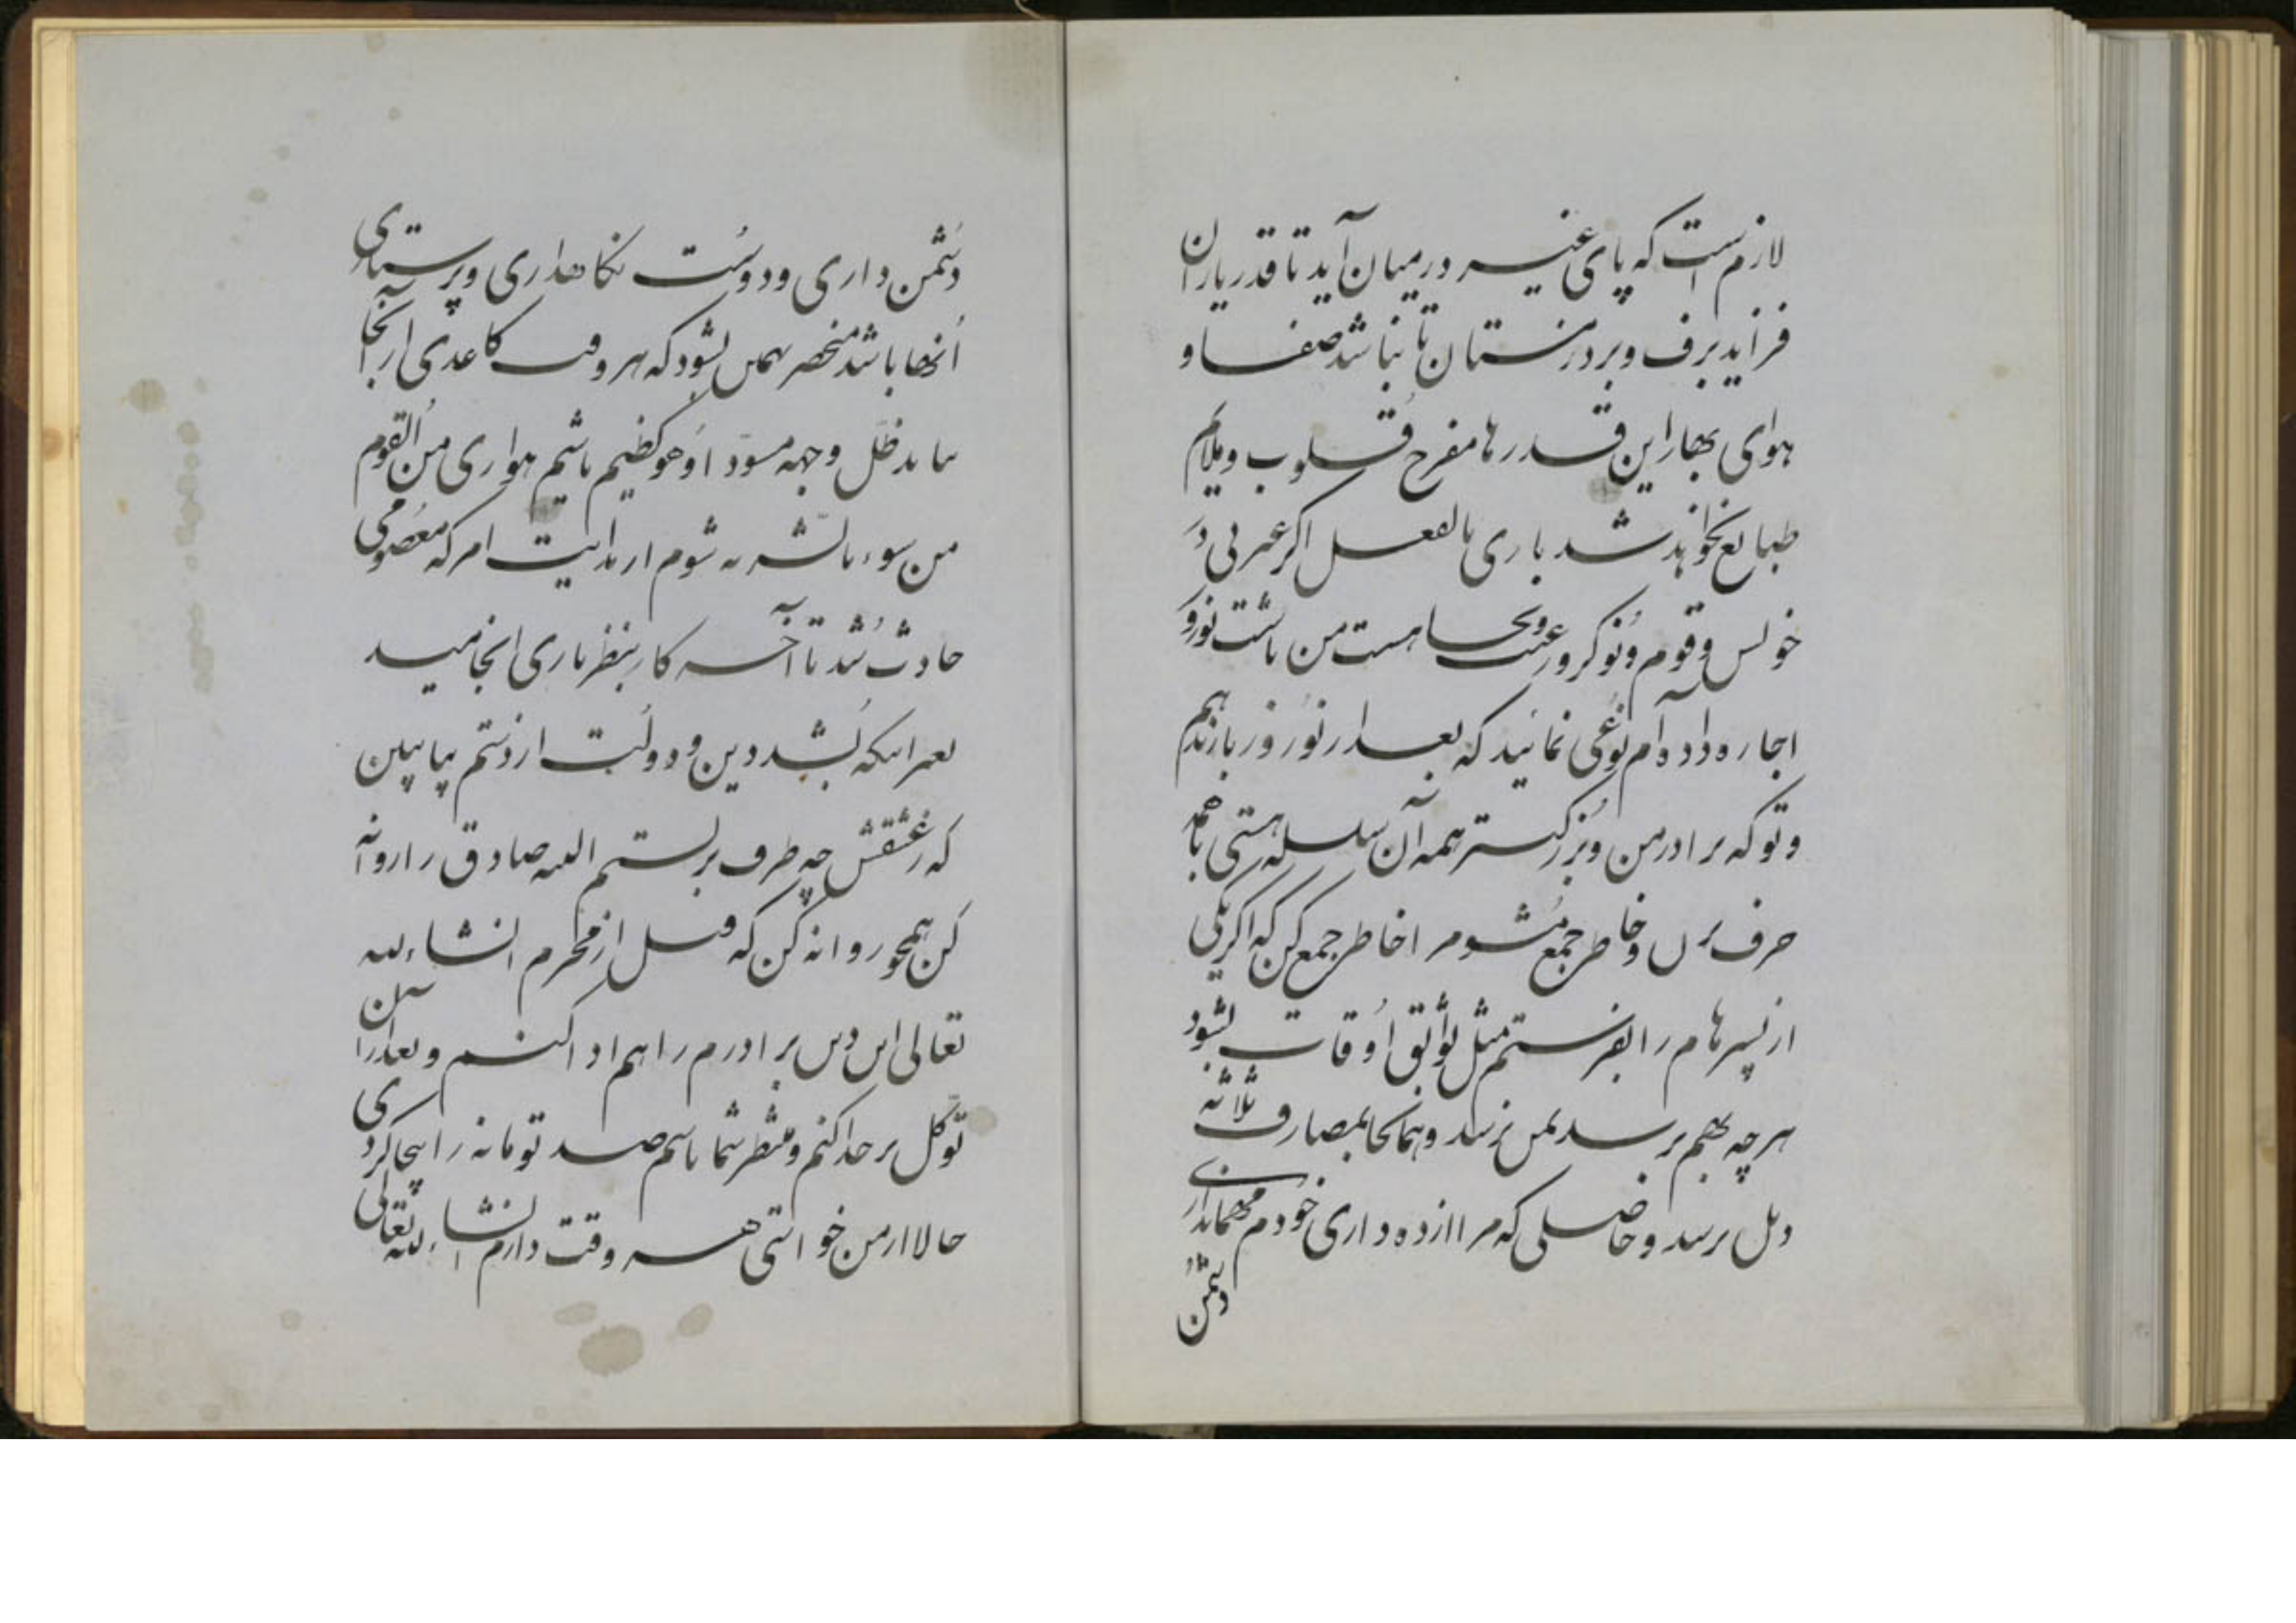 لازم است که پای غیر در میان آید تا قدر یاران
فزاید برف و برد زمستان تا نباشد صفا و
هوای بهار این قدرها مفرح قلوب و ملایم
طبایع نخواهد شد باری بالفعل اگر عیبی در
خویش و قوم و نوکر و رعیت هست من باشت نوروز
اجاره داده‌ام نوعی نمائید که بعد از نوروز بازندهیم
و تو که برادر من و بزرگتر همه آن سلسله هستی با همه
حرف بزن و خاطر جمع شو مرا خاطر جمع کن که اگر یکی
از پسرهام را بفرستم مثل بواثق اوقات بشود
هرچه بهم برسد بمن نرسد و همانجا بمصارف ثلاثه
دبل برسد و حاصلی که مرا از ده داری خودم مهمانداری
دشمن
دشمن داری و دوست نگاهداری و پرستاری
آنها باشد منحصر بهمین بشود که هر وقت کاغذی از آنجا
بیاید ظل وجهه مسودا و هو کظیم باشیم یتواری من القوم
من سوء ما بشر به شوم از بدایت امر که معصومی
حادث شد تا آخر کار بنظر یاری انجامید
بغیر اینکه بشد دین و دولت از دستم بیا ببین
که ز عشقش چه طرف بربستم البته صادق را روانه
کن همچو روانه کن که قبل از محرم انشاءالله
تعالی این دین برادرم را هم ادا کنم و بعد از آن
توکل بر خدا کنم و منتظر شما باشم صد تومانه را بیجا کردی
حالا از من خواستی هر وقت دارم انشاءالله تعالی